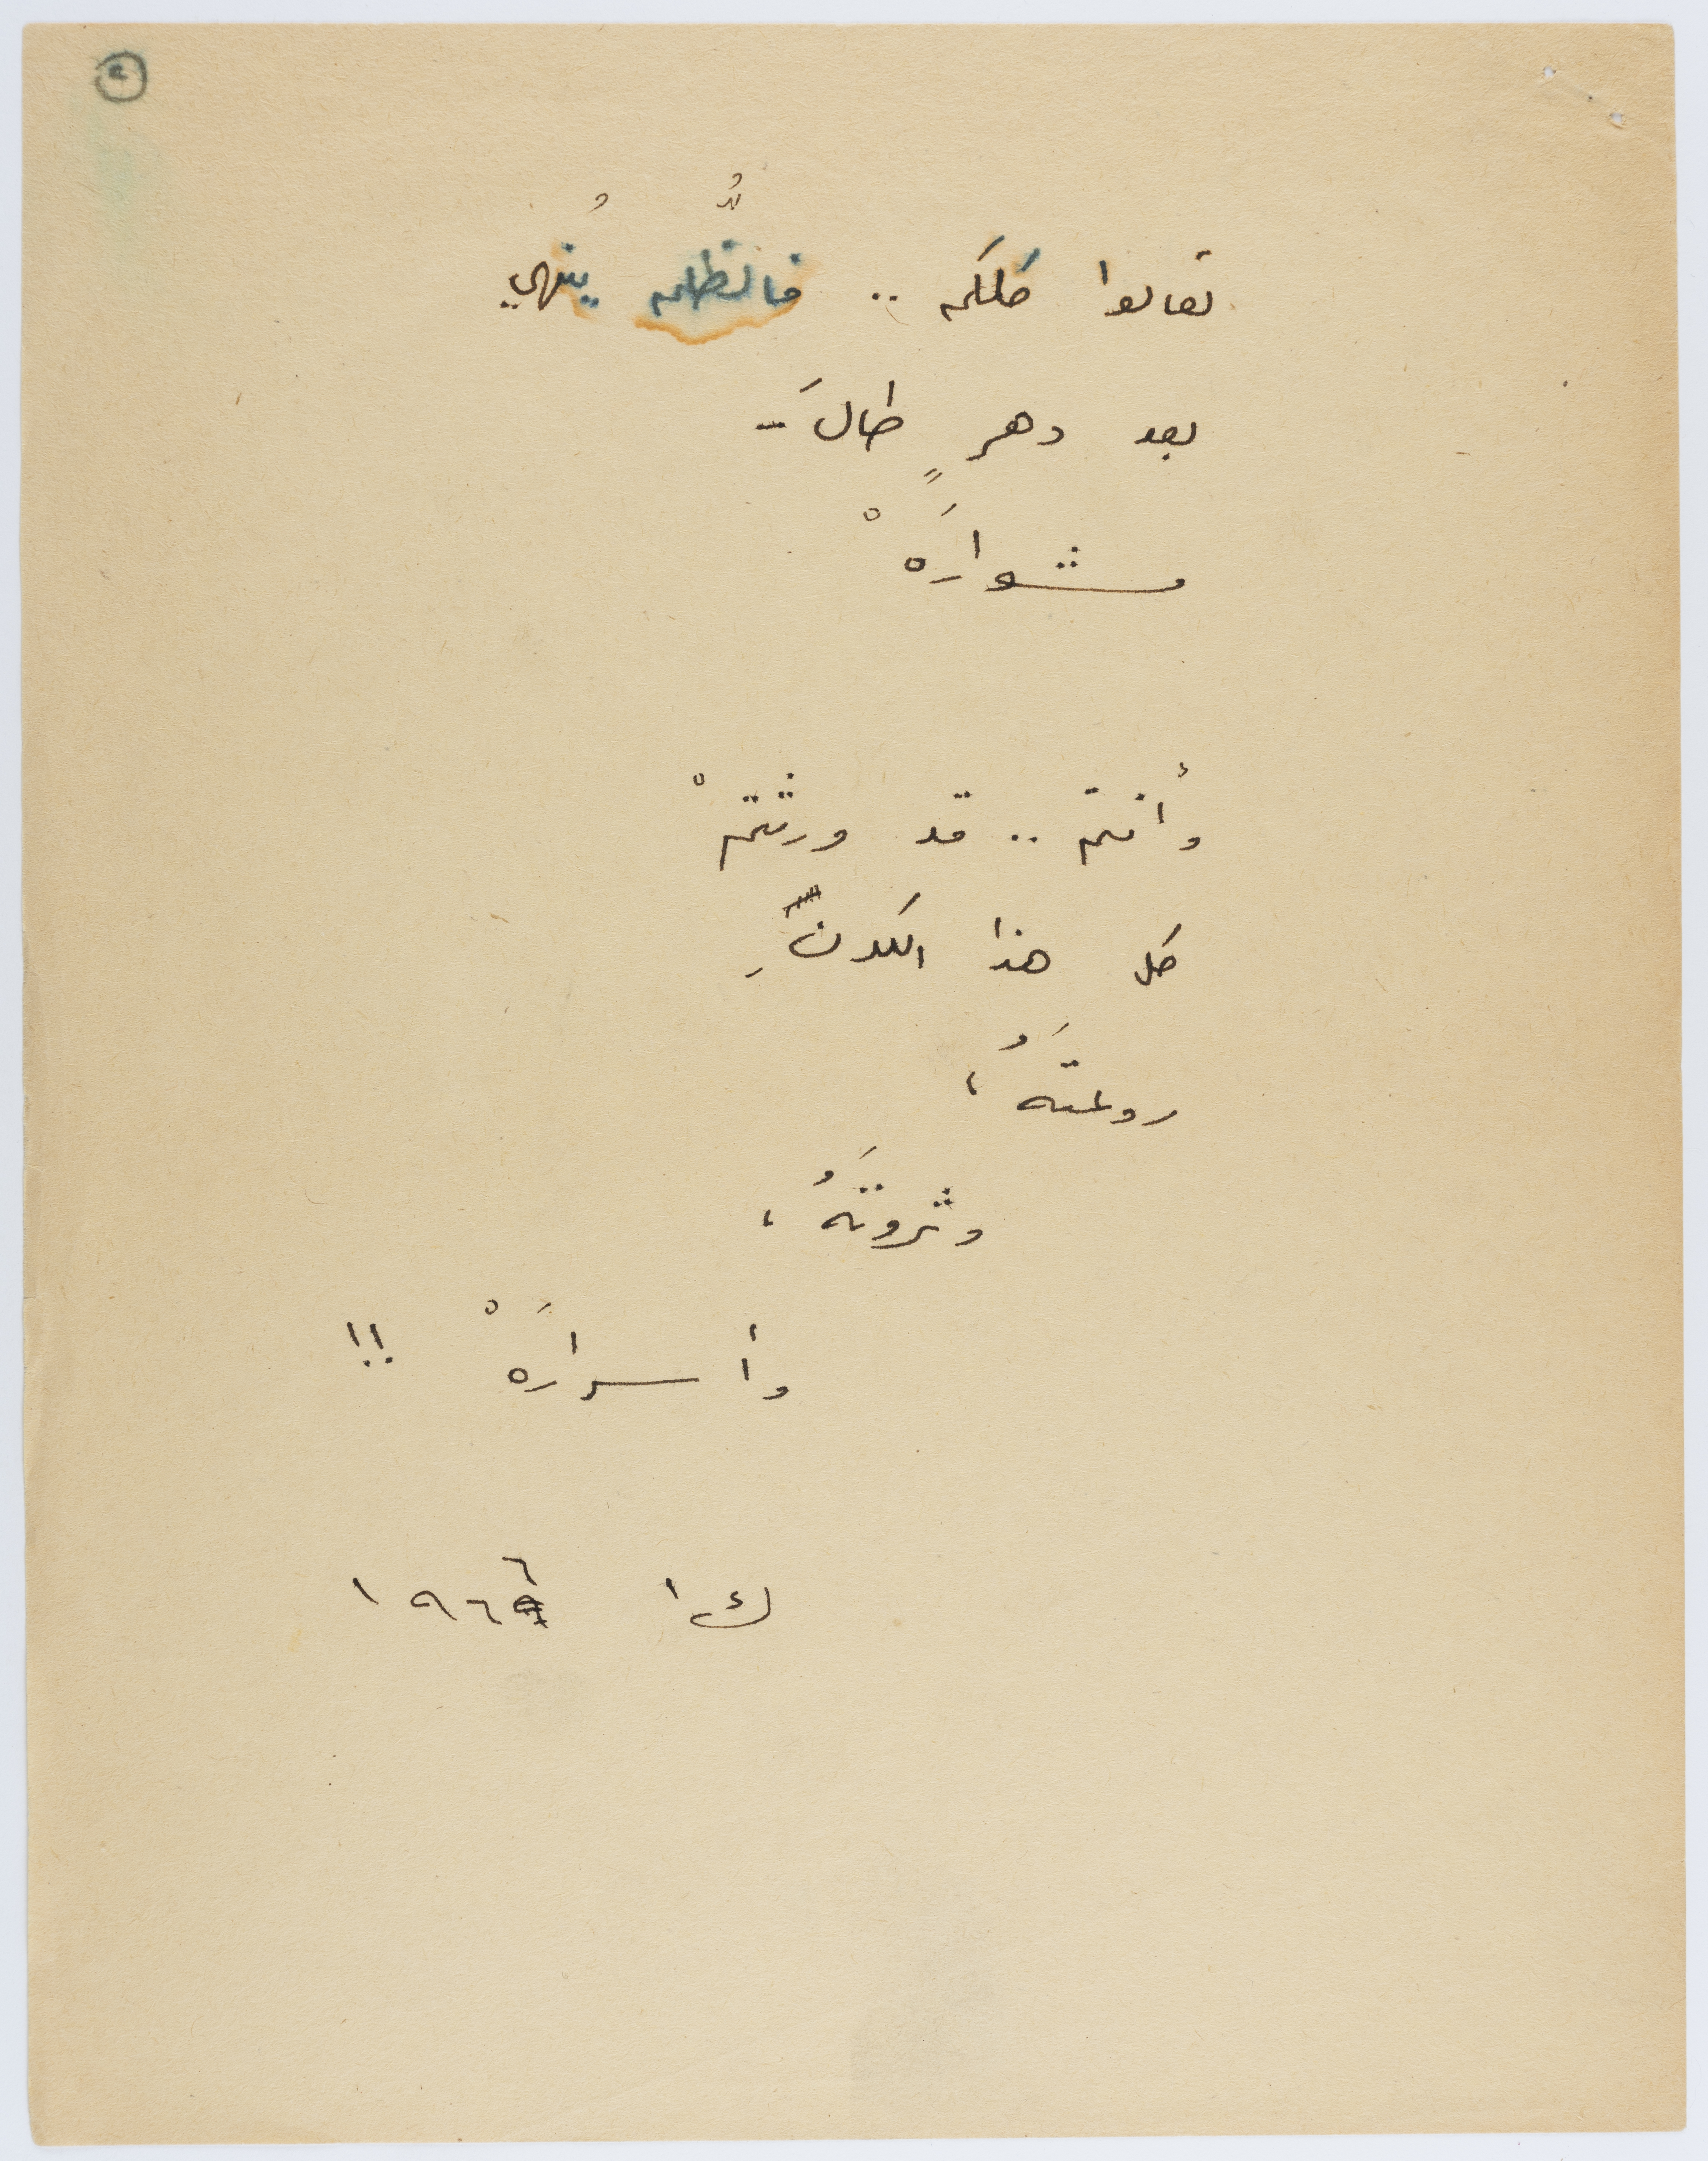 تعالوا كلكم .. فالظُّلم يُنهي
بعد دهرٍ طالَ –
مشوارَهْ
وأنتم .. قد ورثتمْ
كل هذا الكونِ
روعتَهُ ،
وثروتَهُ ،
وأسرارَهْ !!
ك ١ ١٩٦٦